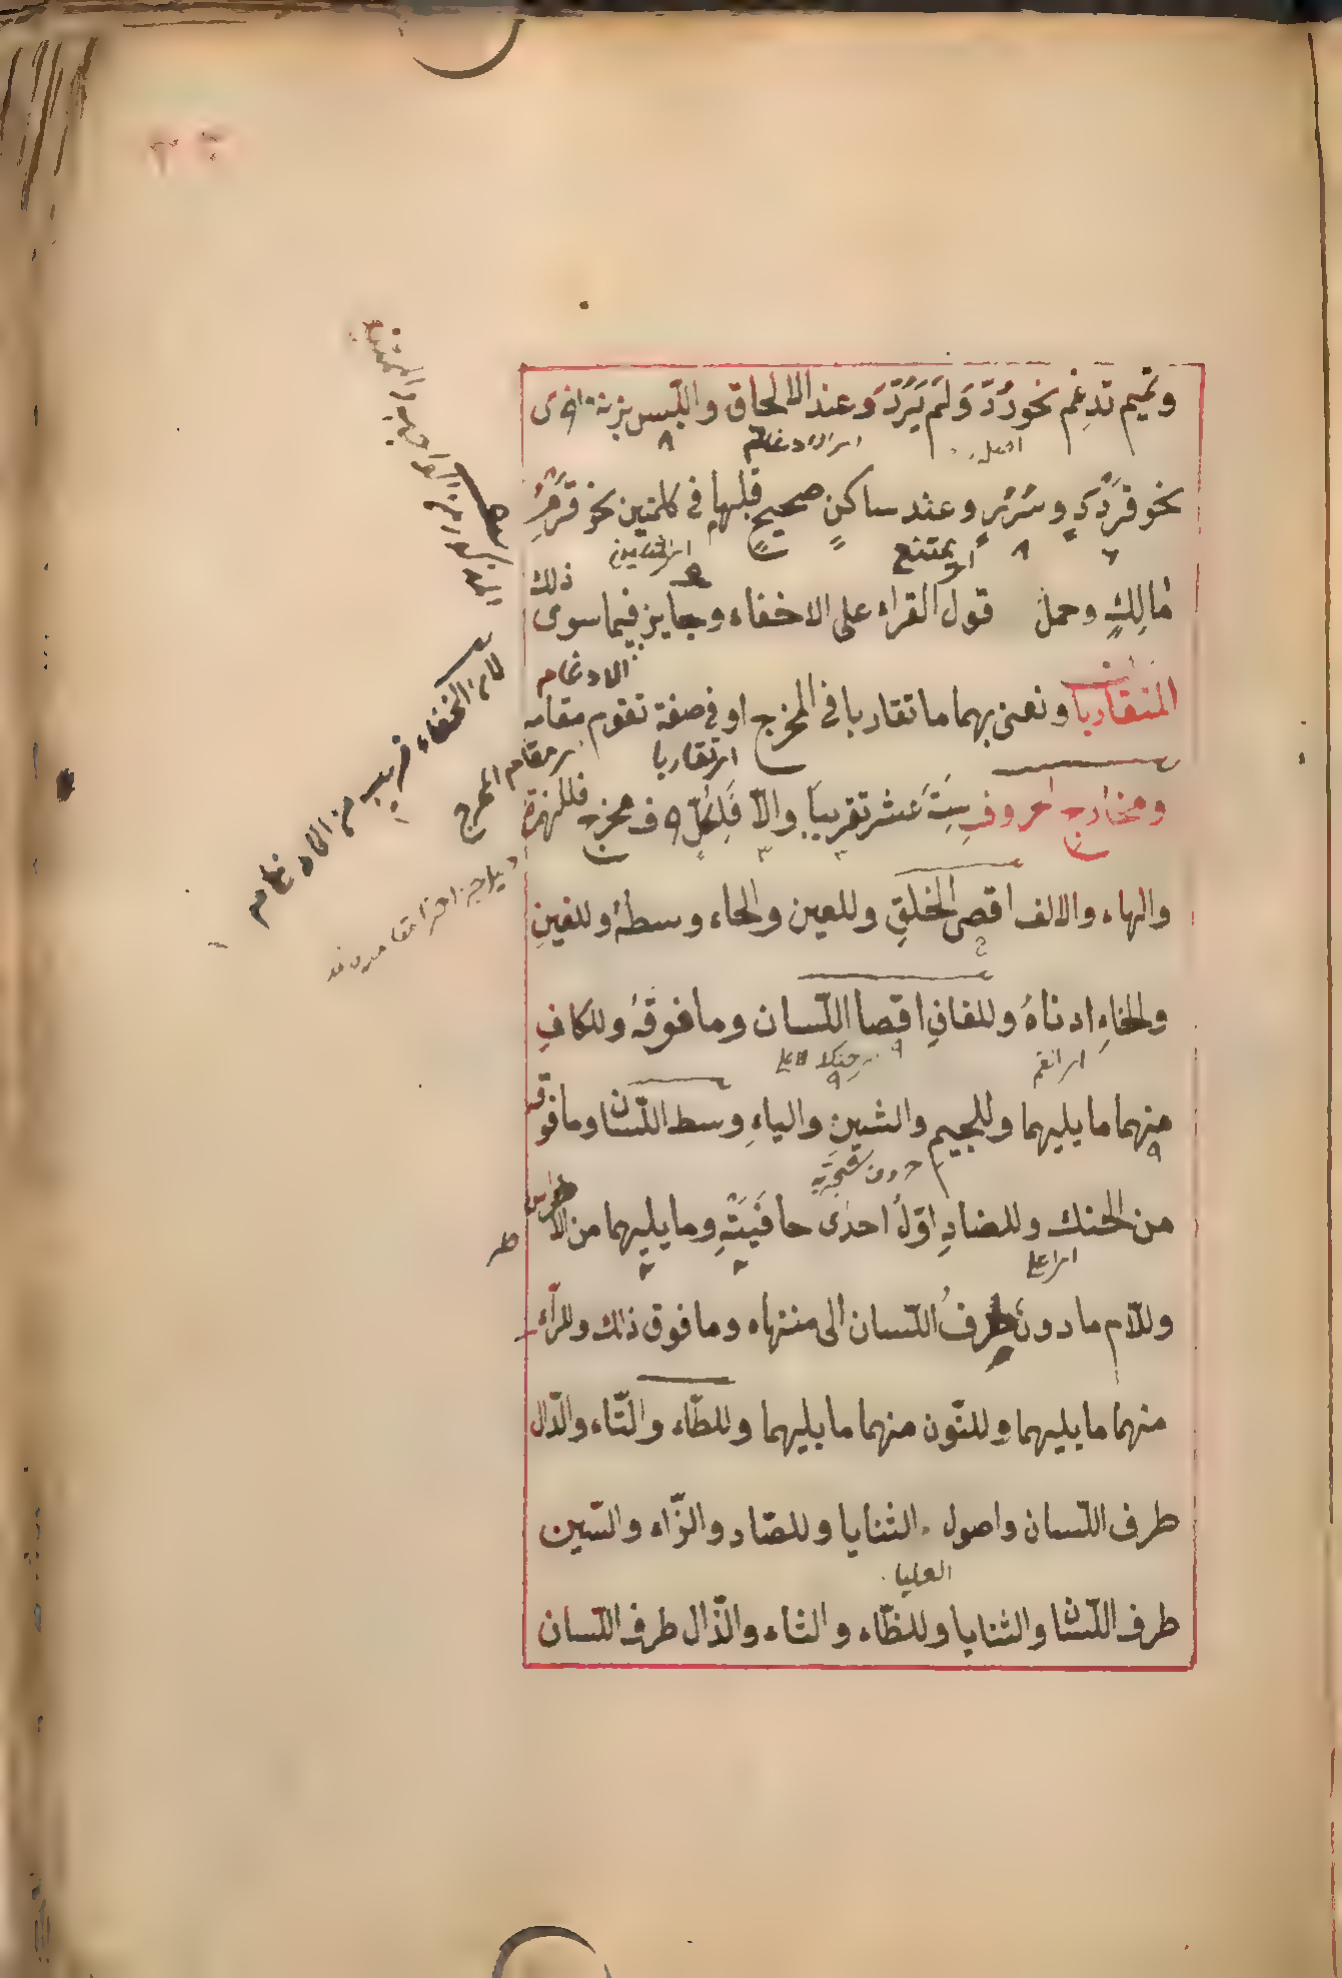 وتميم تدغم نحو رُدّ وَلَم يَرُدّ وعند الالحاق واللبس بزنة اخرى
نحو قَرْدَدٍ وسُرُرٍ وعند ساكنٍ صحيحٍ قبلهما في كلمتين نحو قَرْمُ
مالِكٍ وحمل قول القراء على الاخفاء وجايز فيما سوى ذلك
المتقاربا ونعنى بهما ما تقاربا في المخرج او في صفة تقوم مقامه
ومخارج الحروف سِتَّةَ عَشَرَ تقريبًا والّا فَلِكُلٍّ مخرج فللهمزة
والهاء والالف اقصى الحلقِ وللعين والحاء وسطهُ وللغينِ
والخاءِ ادناهُ وللقافِ اقصا اللّسان وما فوقَهُ وللكافِ
منهما ما يليهما وللجيمِ والشينِ والياءِ وسط اللّسان وما فوقه
من الحنك وللضادِ اوّلُ احدى حافَيَتْهِ وما يليهما من الاضراس
وللّام ما دون طرفُ اللّسان الى منتهاه وما فوق ذلك وللرّاء
منهما ما يليهما وللنّون منهما ما يليهما وللطّاء والتّاء والدّال
طرف اللّسان واصول الثنايا وللصّاد والزّاء والسّين
طرف اللّسان والثنايا وللظّاء والثاء والذّال طرف اللّسان
اى الادغام
يمتنع
الادغام
اى تقاربا
اى مقام المخرج
لان الخفاء قريب من الادغام
حروف شجريّة
العليا